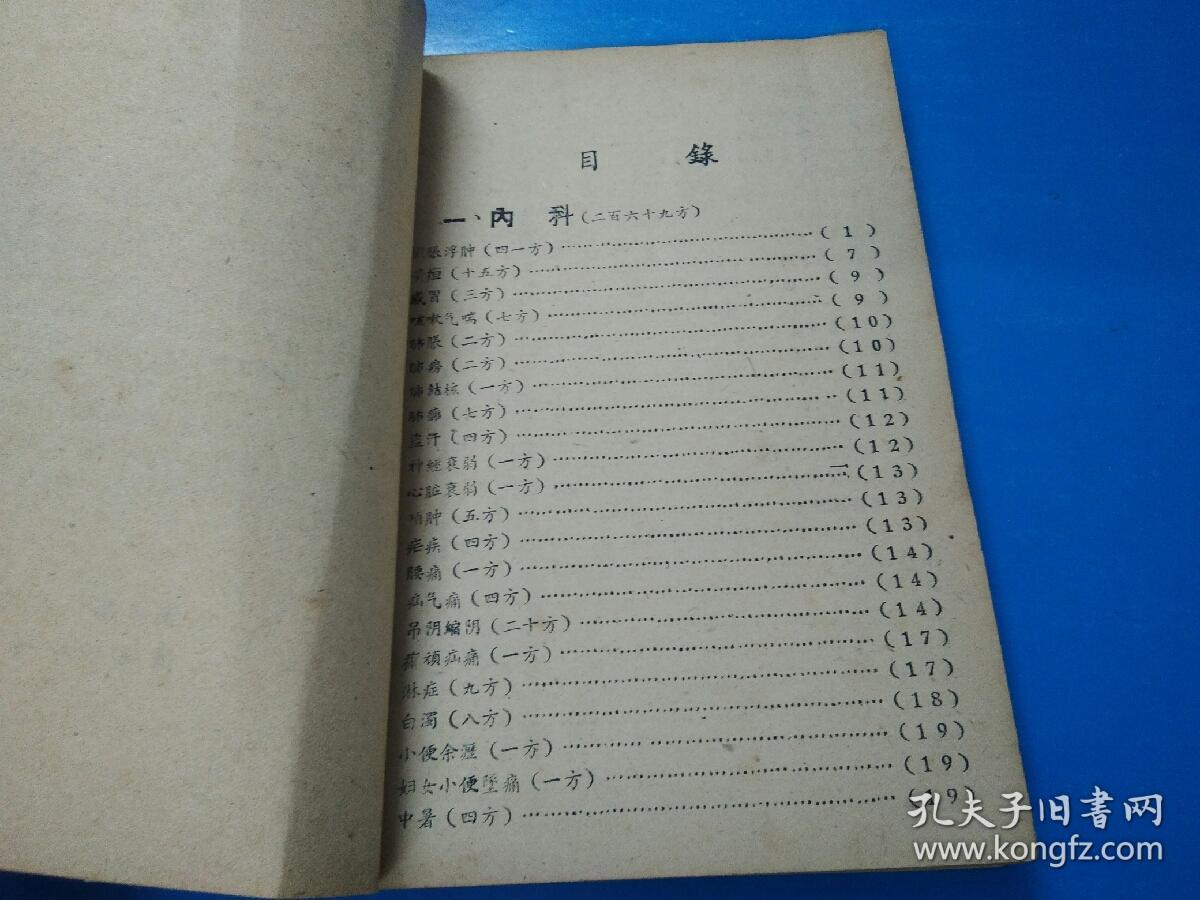 目 錄
一、內 科(二百六十九方)
脹浮肿(四一方)……(1)
疸(十五方)……(7)
感冒(三方)……(9)
咳嗽气喘(七方)……(9)
肺脹(二方)……(10)
肺痨(二方)……(10)
肺結核(一方)……(11)
肺癰(七方)……(11)
盗汗(四方)……(12)
神經衰弱(一方)……(12)
心脏衰弱(一方)……(13)
肿(五方)……(13)
疟疾(四方)……(13)
腰痛(一方)……(14)
疝气痛(四方)……(14)
吊阴縮阴(二十方)……(14)
疝痛(一方)……(17)
淋症(九方)……(17)
白濁(八方)……(18)
小便余瀝(一方)……(19)
妇女小便墜痛(一方)……(19)
中暑(四方)……(19)
孔夫子旧书网
www.kongfz.com